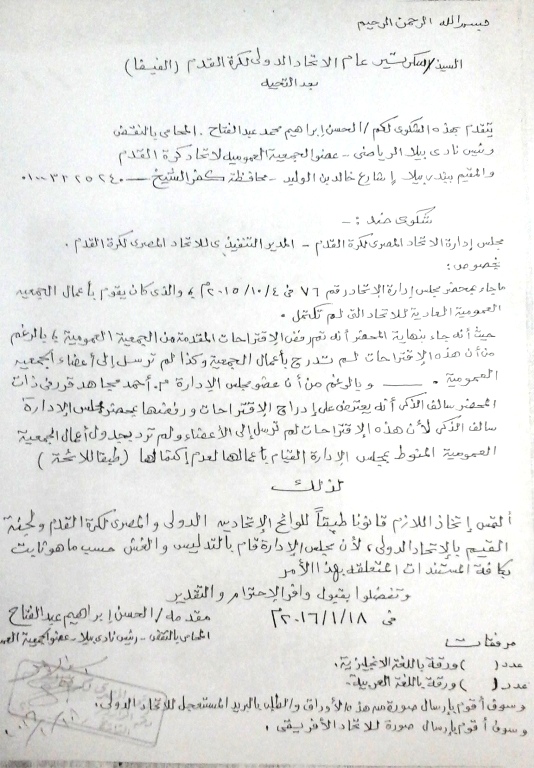 بسم الله الرحمن الرحيم
السيد/ سكرتير عام الاتحاد الدولى لكرة القدم (الفيفا)
بعد التحيه
يتقدم بهذه الشكوى لكم / الحسن إبراهيم محمد عبد الفتاح . المحامى بالنقض
ورئيس نادى بيلا الرياضى - عضو الجمعية العموميه لاتحاد كرة القدم
والمقيم ببندر بيلا ١ شارع خالد بن الوليد - محافظة كفر الشيخ - ٠١٠٠٣٢٢٥٢٤٠
شكوى ضد :-
مجلس إدارة الاتحاد المصرى لكرة القدم - المدير التنفيذى للاتحاد المصرى لكرة القدم .
بخصوص :
ما جاء بمحضر مجلس إدارة الاتحاد رقم ٧٦ فى ٢٠١٥/١٠/٤م ، والذى كان يقوم بأعمال الجمعيه
العمومية العادية للاتحاد التى لم تكتمل .
حيث أنه جاء بنهاية المحضر أنه تم رفض الاقتراحات المقدمة من الجمعية العمومية ، بالرغم
من أن هذه الاقتراحات لم تدرج بأعمال الجمعية وكذا لم ترسل إلى أعضاء الجمعيه
العمومية . وبالرغم من أن عضو مجلس الإدارة م. أحمد مجاهد قرر فى ذات
المحضر سالف الذكر أنه يعترض على إدراج الاقتراحات ورفضها بمحضر مجلس الإدارة
سالف الذكر لأن هذه الاقتراحات لم ترسل إلى الأعضاء ولم ترد بجدول أعمال الجمعية
العمومية المنوط بمجلس الإدارة القيام بأعمالها لعدم إكتمالها (طبقا للائحة)
لذلك
ألتمس إتخاذ اللازم قانونا طبقاً للوائح الإتحادين الدولى والمصرى لكرة القدم ولجنة
القيم بالإتحاد الدولى ، لأن مجلس الإدارة قام بالتدليس والغش حسب ما هو ثابت
بكافة المستندات المتعلقه بهذا الأمر
وتفضلوا بقبول وافر الإحترام والتقدير
فى ٢٠١٦/١/١٨م
مقدمه / الحسن إبراهيم عبد الفتاح
المحامى بالنقض - رئيس نادى بيلا - عضو الجمعية
مرفقات
عدد ( ) ورقة باللغة الانجليزية .
عدد ( ) ورقة باللغة العربية .
وسوف أقوم بإرسال صورة من هذه الأوراق والطلب بالبريد المستعجل للاتحاد الدولى .
وسوف أقوم بإرسال صورة للاتحاد الأفريقى .